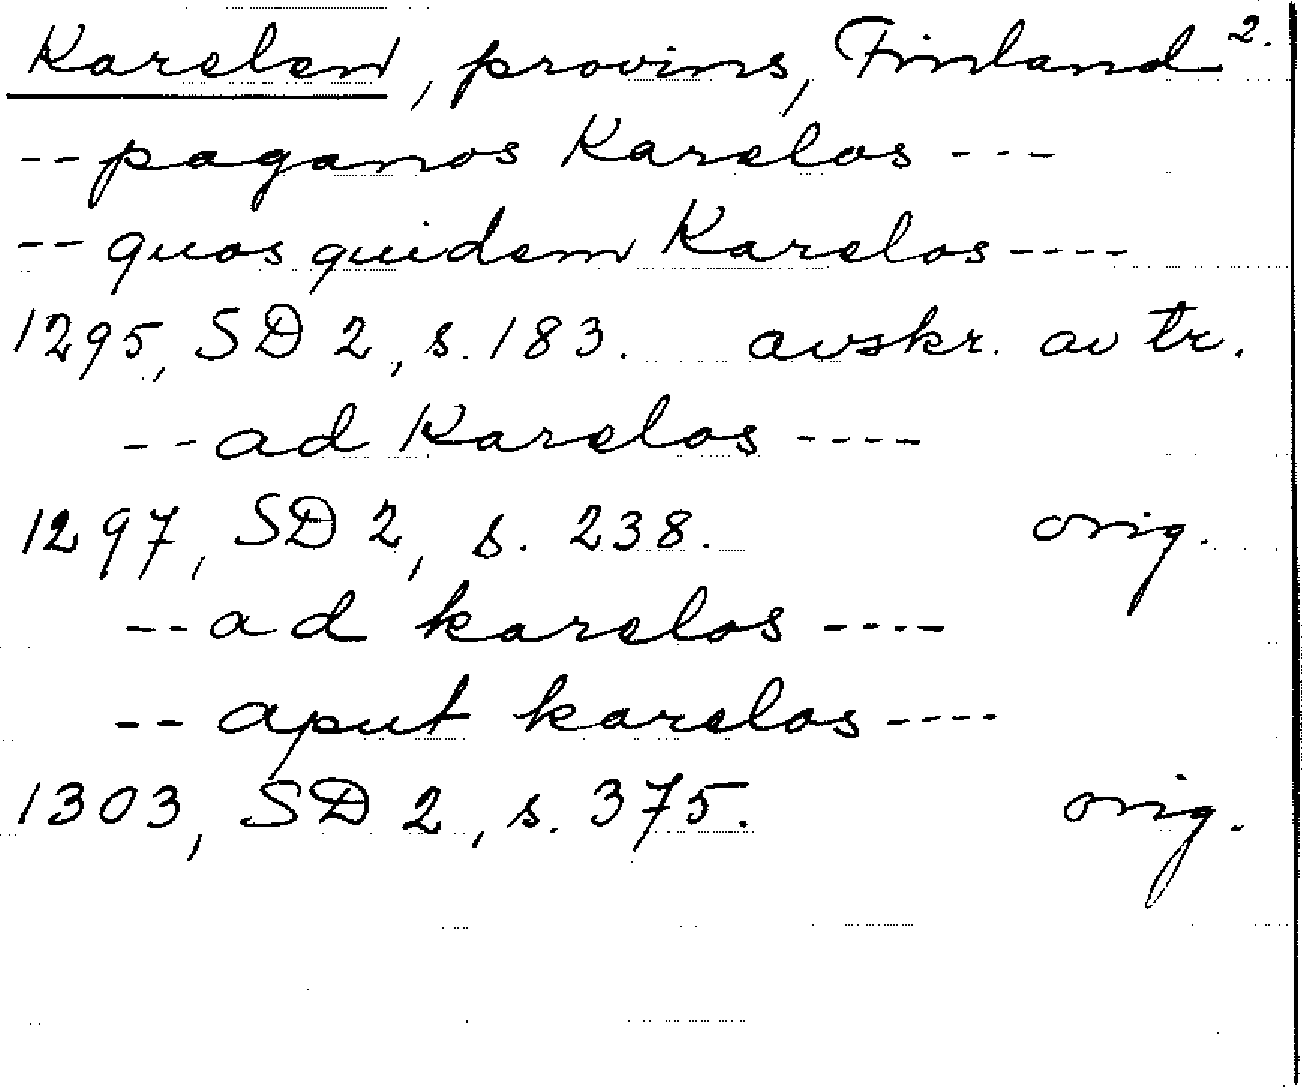 Karelen, provins, Finland 2.
-- paganos Karelos ---
-- quos quidem Karelos ----
1295, SD 2, s. 183. avskr. av tr.
-- ad Karelos ----
1297, SD 2, s. 238. orig.
-- ad karelos ----
-- aput karelos ----
1303, SD 2, s. 375. orig.